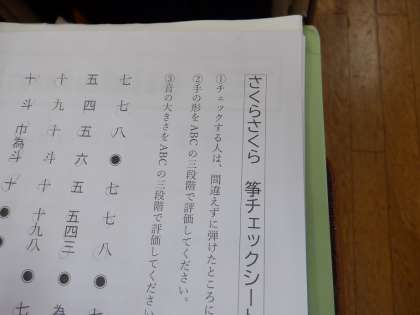 さくらさくら　箏チェックシート
①チェックする人は、間違えずに弾けたところに
②手の形をABCの三段階で評価してください。
③音の大きさをABCの三段階で評価してください
七七八●七七八●七
五四五六五五四三●為
十九十斗十十九八●七
十斗巾為斗十●